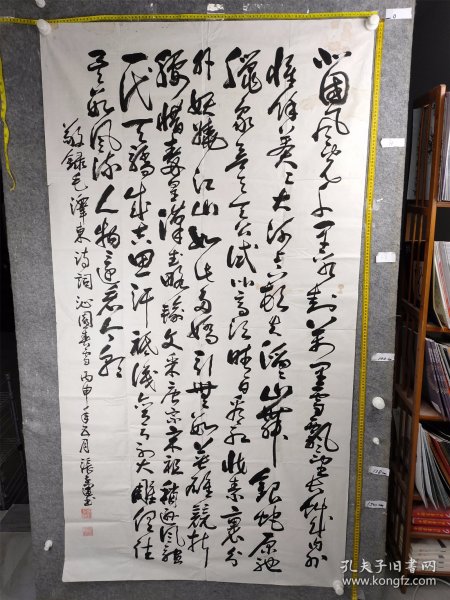 北国风光千里冰封万里雪飘望长城内外
惟余莽莽大河上下顿失滔滔山舞银蛇原驰
蜡象欲与天公试比高须晴日看红装素裹分
外妖娆江山如此多娇引无数英雄竞折
腰惜秦皇汉武略输文采唐宗宋祖稍逊风骚
一代天骄成吉思汗祗识弯弓射大雕俱往
矣数风流人物还看今朝
敬録毛澤東诗词沁園春雪丙申年五月張
孔夫子旧书网
www.kongfz.com